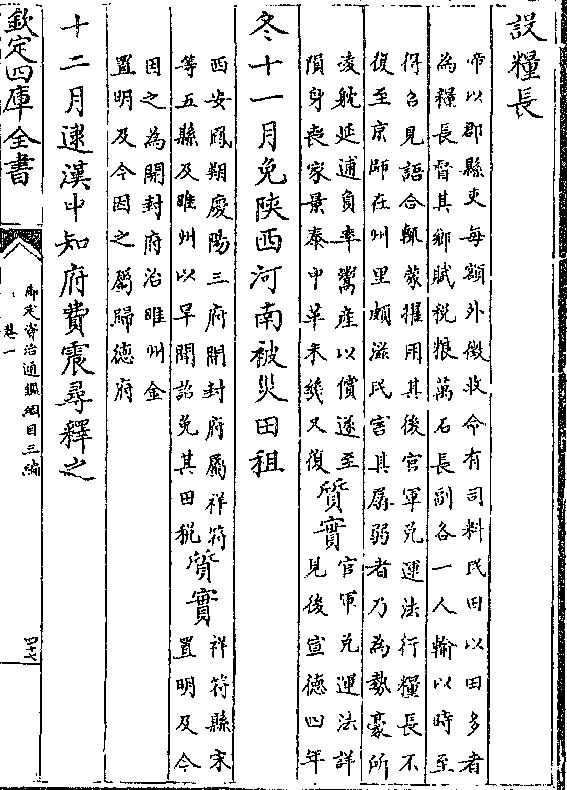 設糧長
帝以郡縣吏每額外徵收命有司料民田以田多者
為糧長督其鄉賦税糧萬石長副各一人輸以時至
得召見語合輒蒙擢用其後官軍兌運法行糧長不
復至京師在州里頗滋民害其孱弱者乃為勢豪所
凌躭延逋負率鬻産以償遂至
隕身喪家景泰中革未幾又復
質實
官軍兌運法詳
見後宣德四年
冬十一月免陝西河南被災田租
西安鳳翔慶陽三府開封府屬祥符
等五縣及睢州以旱聞詔免其田税
質實
祥符縣宋
置明及今
因之為開封府治睢州金
置明及今因之屬歸德府
十二月逮漢中知府費震尋釋之
欽定四庫全書
御定資治通鑑綱目三編
卷一